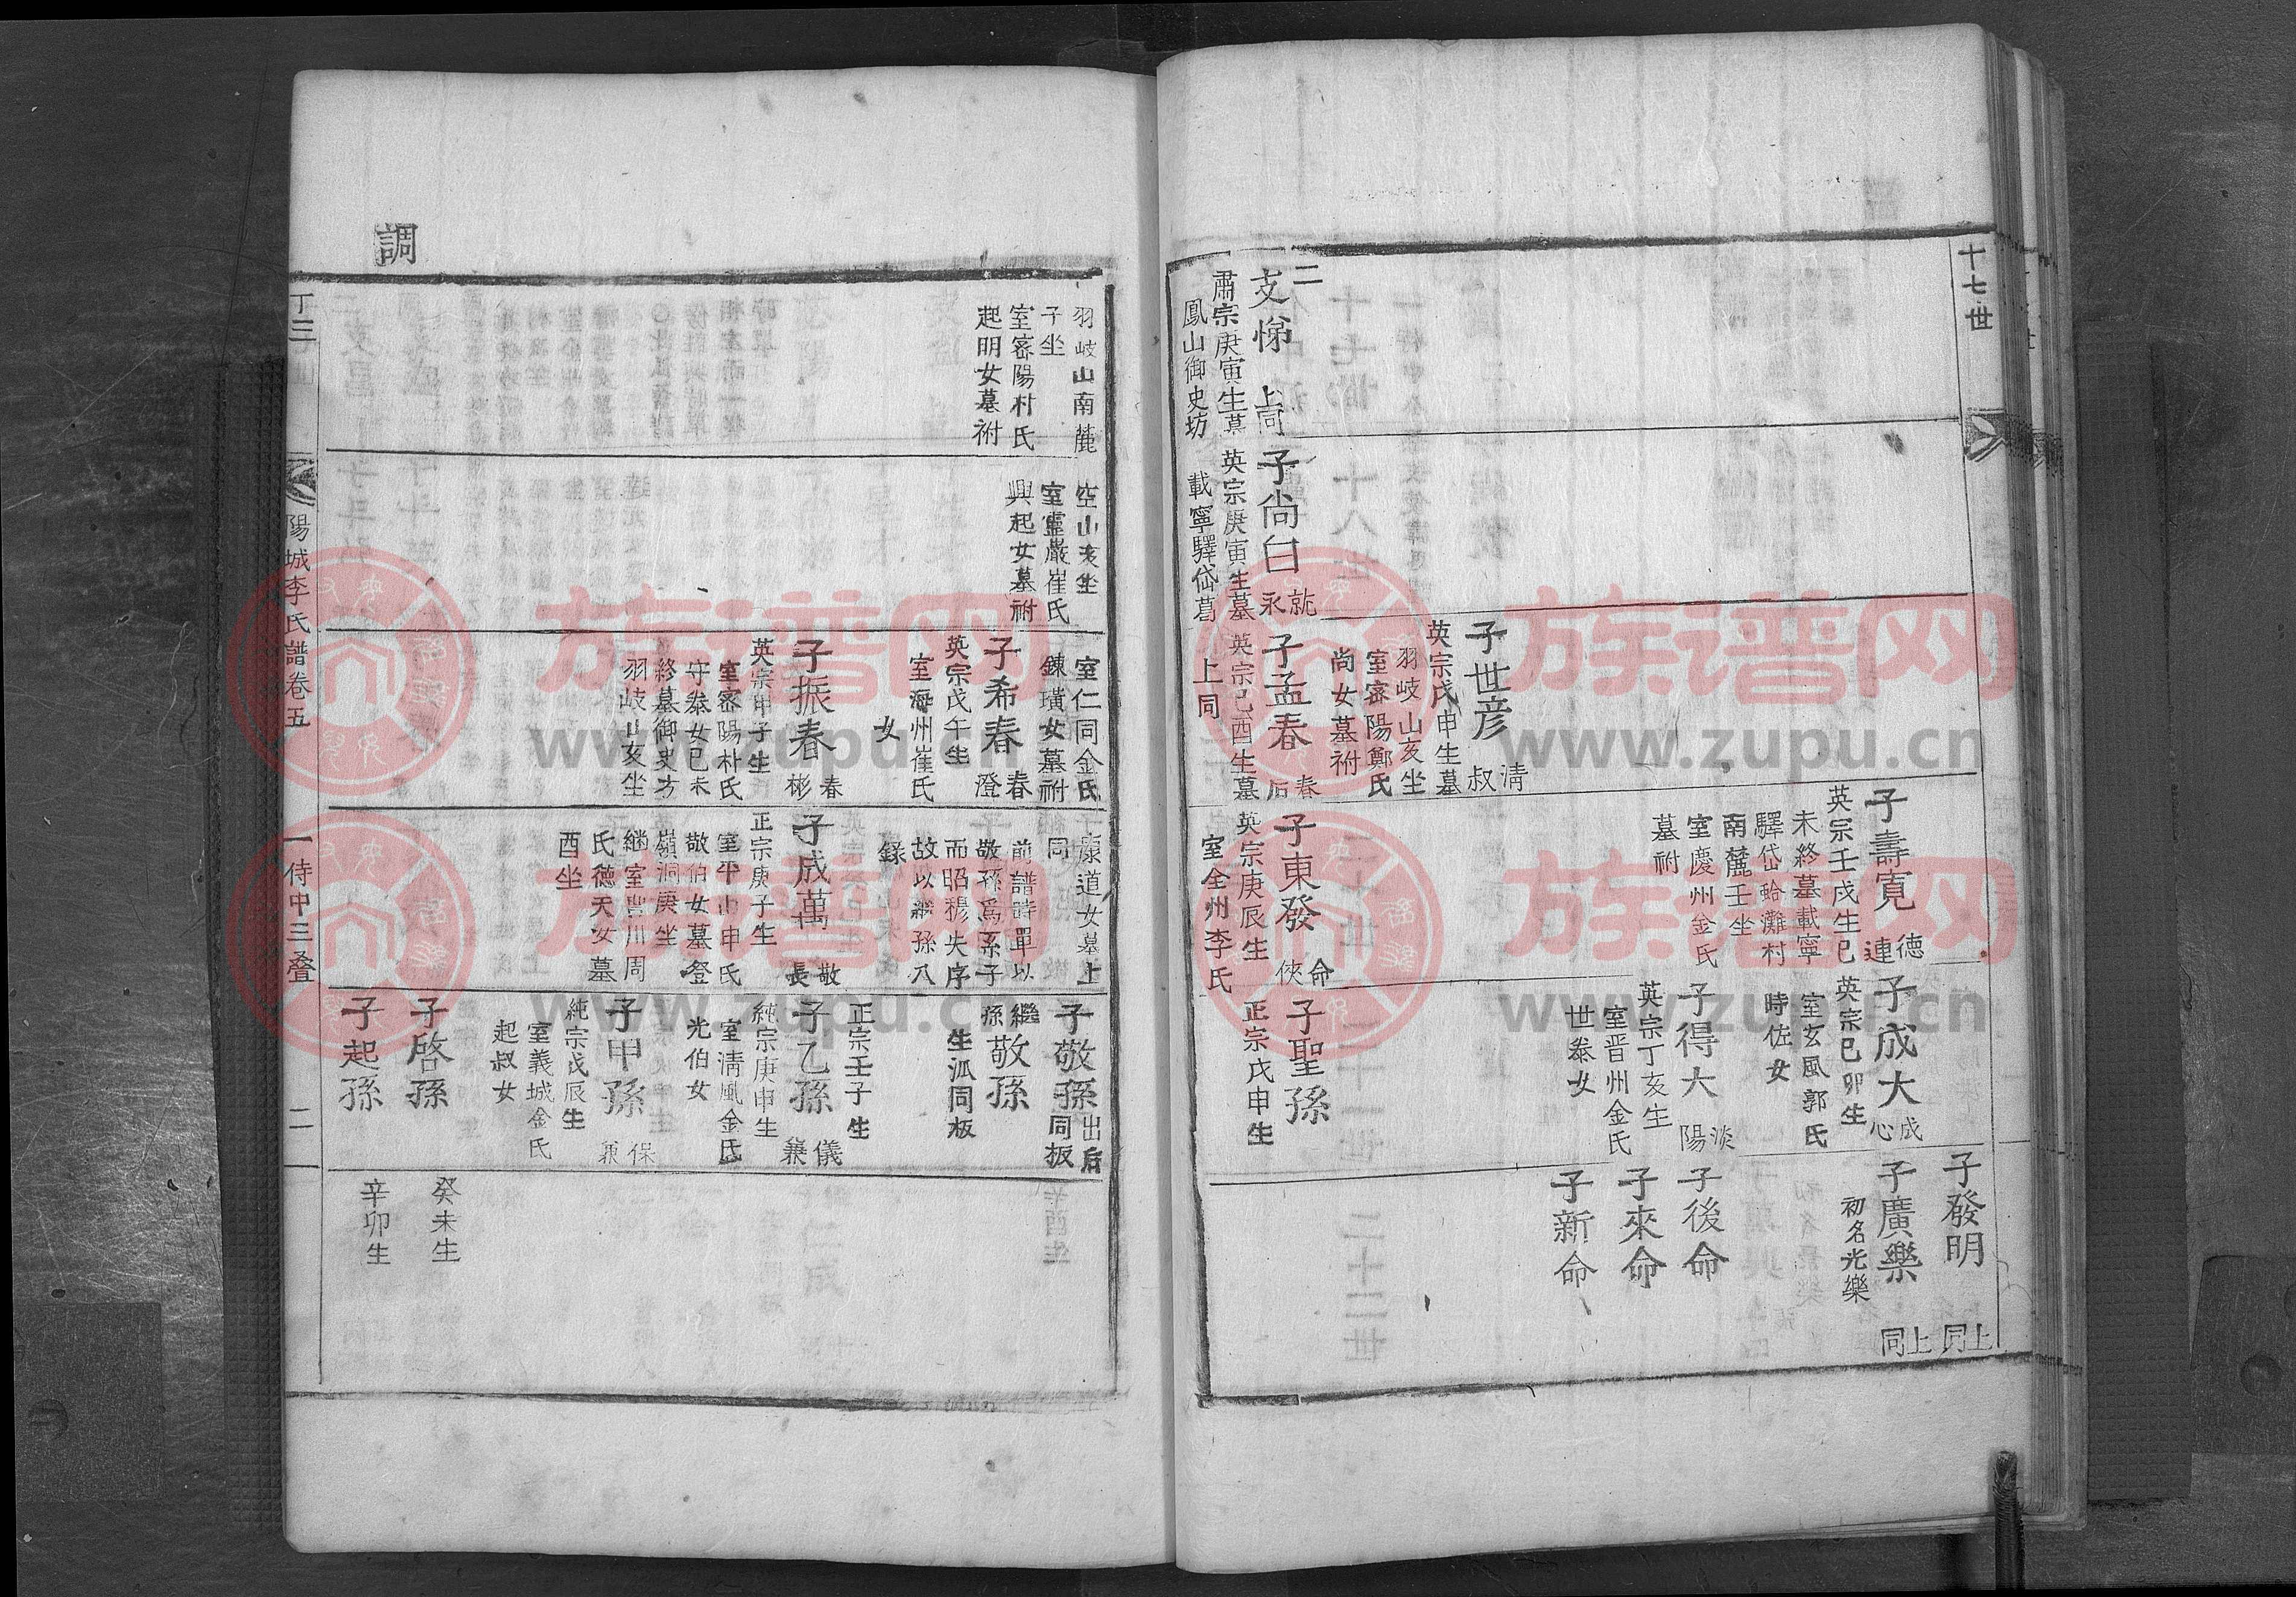 十七世
子壽寬 德連
英宗壬戌生已
未終墓載寧
驛岱蛤灘村
南麓壬坐
室慶州金氏
墓祔
子成大 成心
英宗己卯生
室玄風郭氏
時佐女
子發明 上同
子廣樂 上同
初名光樂
子世彦 清叔
英宗戊申生墓
羽岐山亥坐
室密陽鄭氏
尚女墓祔
子得大 淡陽
英宗丁亥生
室晋州金氏
世泰女
子後命
子來命
子新命
二
文悌 上同
肅宗庚寅生墓
鳳山御史坊
子尚白 就永
英宗庚寅生墓
載寧驛岱葛
子孟春 春后
英宗己酉生墓
上同
子東發 命俠
英宗庚辰生
室全州李氏
子聖孫
正宗戊申生
調
羽岐山南麓
子坐
室密陽村氏
起明女墓祔
空山亥坐
室靈巖崔氏
興起女墓祔
室仁同金氏
鍊璜女墓祔
康道女墓上
同
子希春 春澄
英宗戊午生
室海州崔氏
女
前譜時單以
敬孫爲系子
而昭穆失序
故以繼孫入
錄
子敬孫 出后同板
繼孫敬孫
生派同板
正宗壬子生
子振春 春彬
英宗甲子生
室密陽朴氏
守泰女已未
終墓御史方
羽岐山亥坐
子成萬 敬長
正宗庚子生
室平山申氏
敬伯女墓登
嶺洞庚坐
繼室豊川周
氏德天女墓
酉坐
子乙孫 儀兼
純宗庚申生
室清風金氏
光伯女
子甲孫 保兼
純宗戊辰生
室義城金氏
起叔女
子啓孫
癸未生
子起孫
辛卯生
丁三
陽城李氏譜卷五
一侍中三疊
二
族谱网
www.zupu.cn
族谱网
www.zupu.cn
族谱网
www.zupu.cn
族谱网
www.zupu.cn